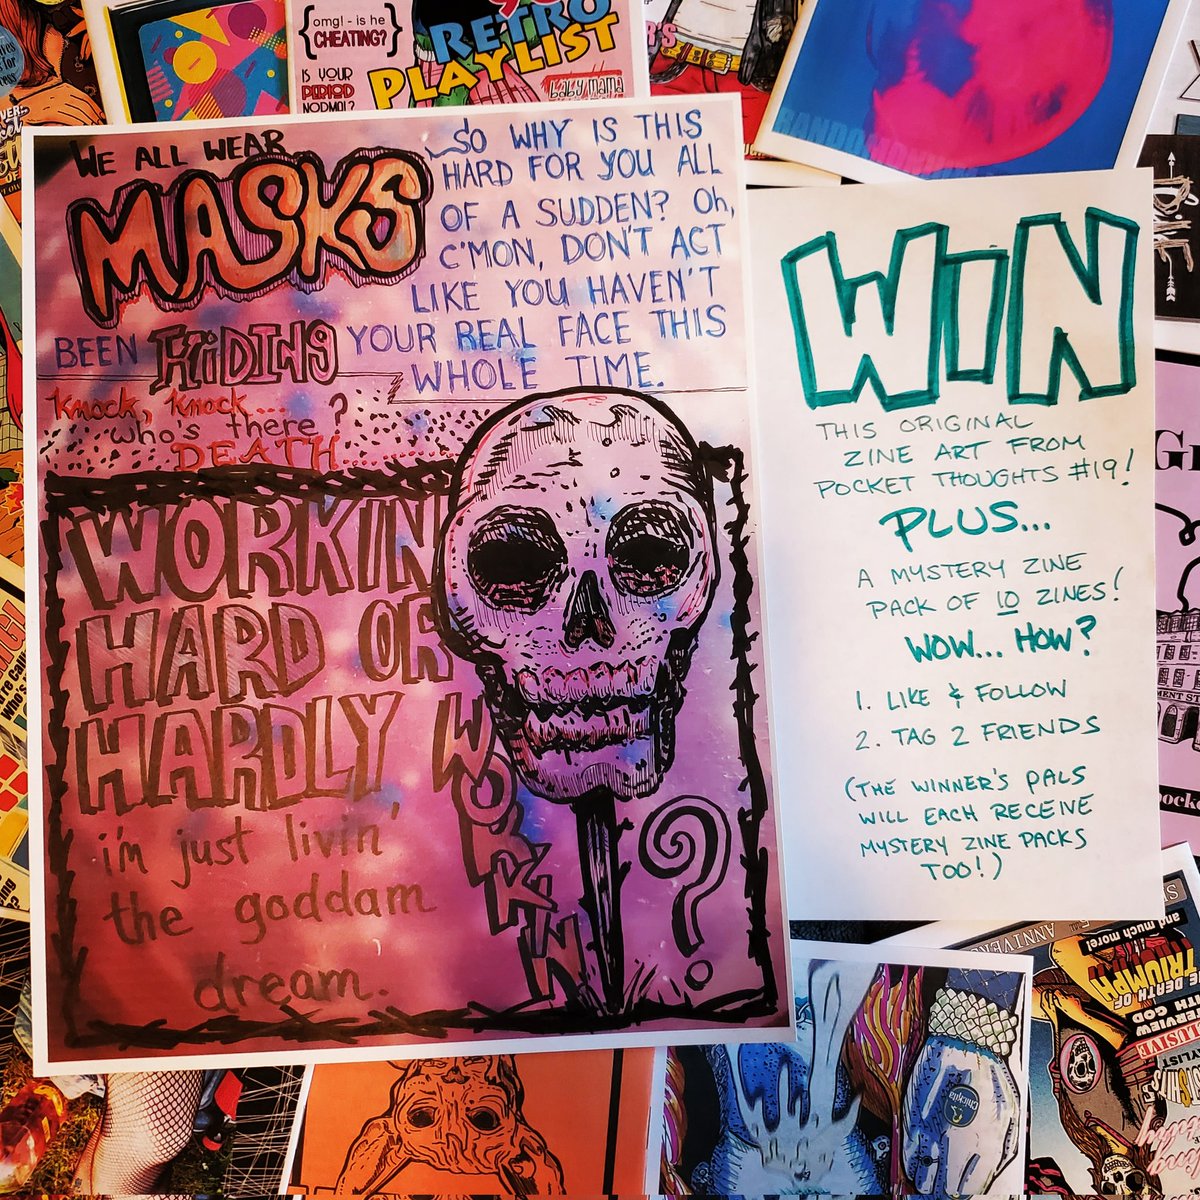 WE ALL WEAR
MASKS
SO WHY IS THIS
HARD FOR YOU ALL
OF A SUDDEN? Oh,
C'MON, DON'T ACT
LIKE YOU HAVEN'T
BEEN HiDING YOUR REAL FACE THIS
WHOLE TIME.
Knock, Knock...
who's there?
DEATH
WORKIN
HARD OR
HARDLY
WORKIN
?
i'm just livin'
the goddam
dream.
WiN
THIS ORIGINAL
ZINE ART FROM
POCKET THOUGHTS #19!
PLUS...
A MYSTERY ZINE
PACK OF 10 ZINES!
WOW... HOW?
1. LIKE & FOLLOW
2. TAG 2 FRIENDS
(THE WINNER'S PALS
WILL EACH RECEIVE
MYSTERY ZINE PACKS
TOO!)
omg! - is he
CHEATING?
IS YOUR
PERIOD
NORMAL?
RETRO
PLAYLIST
baby mama
ANNIVERS
and much more!
DEATH OF
TRIUMPH
INTERVIEW
GOD
Chiquita